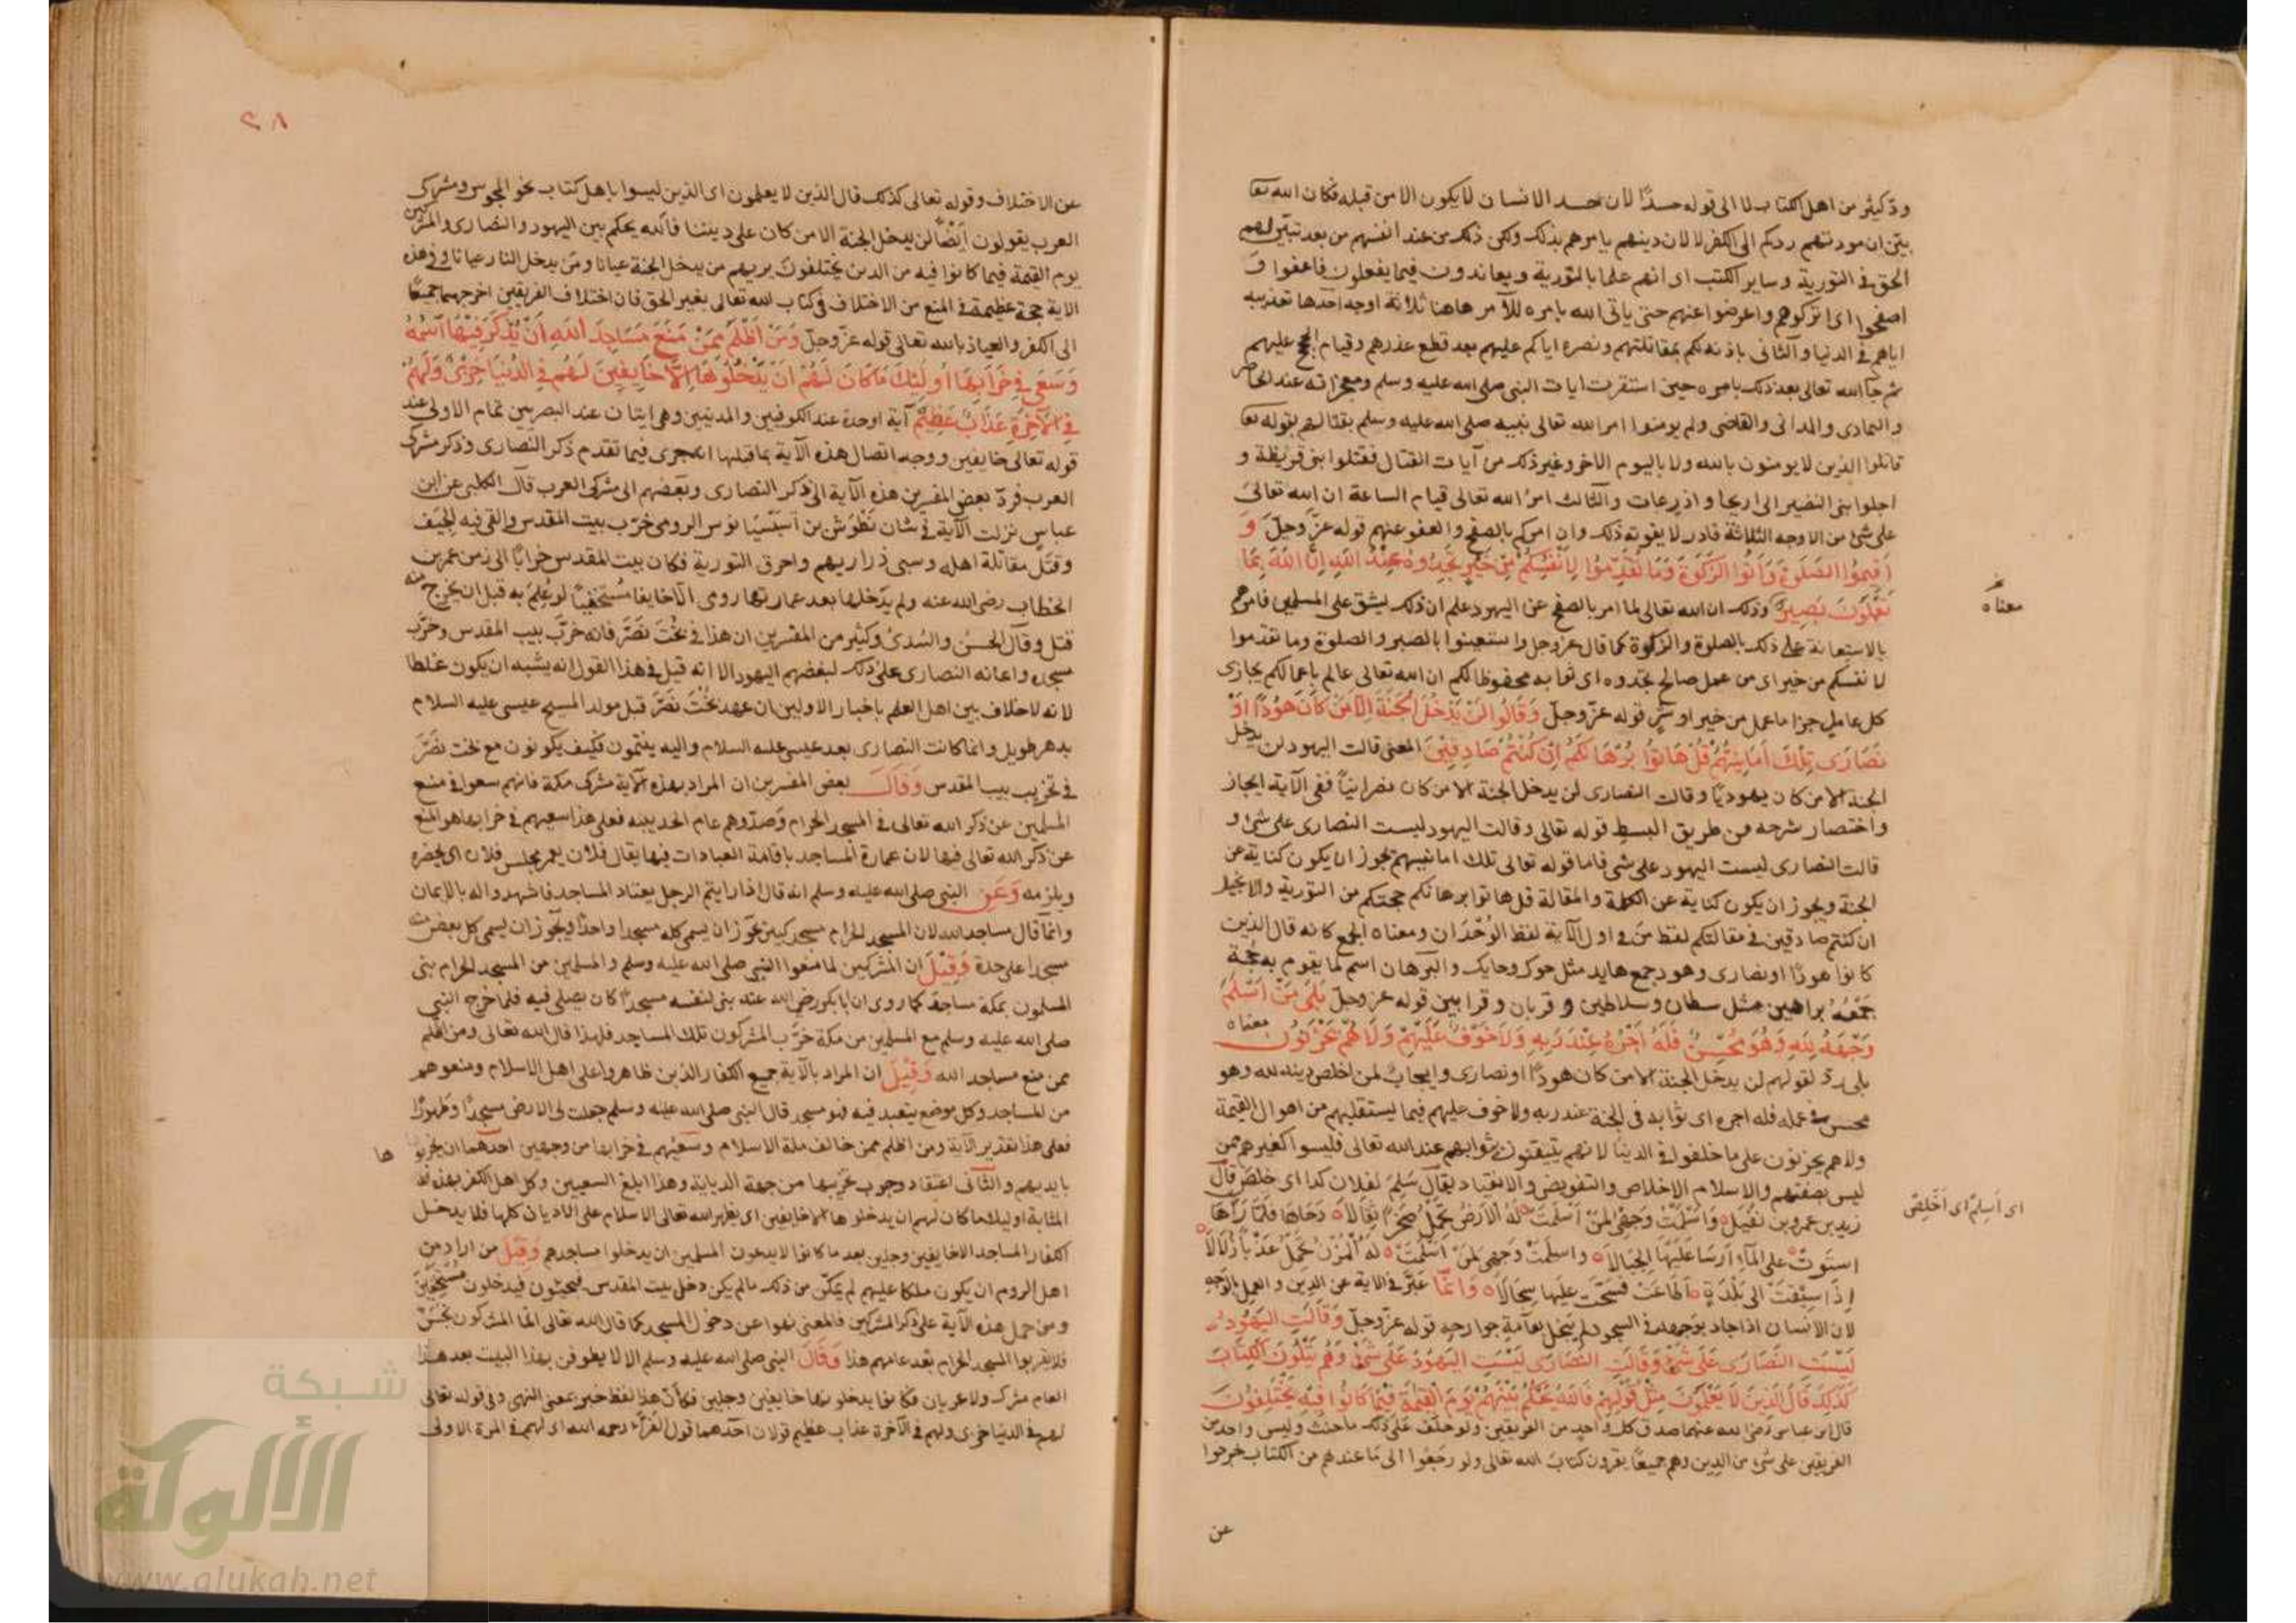 ود كثير من اهل الكتاب لما الى قوله حسدًا لان حسد الانسان لا يكون الا من قبله فكان الله تعا
بيّن ان مودتهم ردكم الى الكفر لا لان دينهم يامرهم بذلك ولكن ذلك من عند انفسهم من بعد تبيّن لهم
الحق في التورية وساير الكتب اى انهم علما بالتورية ويعاندون فيما يفعلون فاعفوا وَ
اصفحوا اى اتركوهم واعرضوا عنهم حتى ياتى الله بامره للآمر هاهنا ثلاثة اوجه احدها تعذيبه
اياهم في الدنيا والثانى باذنه لكم بمقاتلتهم ونصره اياكم عليهم بعد قطع عذرهم وقيام الحجج عليهم
ثم جآ الله تعالى بعد ذلك بامره حين استقرت ايات النبى صلى الله عليه وسلم ومعجزاته عند الحاضر
والبادى والدانى والقاصى ولم يومنوا امر الله تعالى نبيه صلى الله عليه وسلم بقتالهم بقوله تعا
قاتلوا الذين لا يومنون بالله ولا باليوم الاخر وغير ذلك من آيات القتال فقتلوا بنى قريظة و
اجلوا بنى النضير الى اريحا واذرعات والثالث امرُ الله تعالى قيام الساعة ان الله تعالىَ
على شئ من الاوجه الثلاثة قادر لا يفوته ذلك وان امركم بالصفح والعفو عنهم قوله عزّ وجلّ وَ
اَقيمُوا الصَّلٰوةَ وَآتُوا الزَّكٰوةَ وَمَا تُقَدِّمُوْا لِاَنْفُسِكُمْ مِّنْ خَيْرٍ تَجِدُوهُ عِنْدَ اللّٰهِ اِنَّ اللّٰهَ بِمَا
تَعْمَلُونَ بَصِيرٌ وذلك ان الله تعالى لما امر بالصفح عن اليهود علم ان ذلك ليشق على المسلمين فامرهم
معناه
بالاستعانة على ذلك بالصلوة والزكوة كما قال عز وجل واستعينوا بالصبر والصلوة وما تقدموا
لانفسكم من خير اى من عمل صالح تجدوه اى ثوابه محفوظا لكم ان الله تعالى عالم باعمالكم يجازى
كل عامل جزا ما عمل من خير او شرٍّ قوله عزّ وجلّ وَقَالُوا لَنْ يَدْخُلَ الْجَنَّةَ اِلَّا مَنْ كَانَ هُوْدًا اَوْ
نَصَارَى تِلْكَ اَمَانِيُّهُمْ قُلْ هَاتُوا بُرْهَانَكُمْ اِنْ كُنْتُمْ صَادِقِيْنَ المعنى قالت اليهود لن يدخل
الجنة الا من كان يهوديًّا وقالت النصارى لن يدخل الجنة الا من كان نصرانيًّا ففى الآية ايجاز
واختصار شرحه من طريق البسط قوله تعالى وقالت اليهود ليست النصارى على شئ و
قالت النصارى ليست اليهود على شى فاما قوله تعالى تلك امانيهم يجوز ان يكون كناية عن
الجنة ويجوز ان يكون كناية عن الكلمة والمقالة قل هاتوا برهانكم حجتكم من التورية والانجيل
ان كنتم صادقين في مقالتكم لفظ مَن في اول الآية لفظ الوُحْدَان ومعناه الجمع كانه قال الذين
كانوا هودًا او نصارى وهود جمع هايد مثل حوك وحايك والبرهان اسم لما يقوم به حُجة
جَمْعُهُ براهين مثل سلطان وسلاطين وقربان وقرابين قوله عز وجلّ بَلٰى مَنْ اَسْلَمَ
وَجْهَهُ لِلّٰهِ وَهُوَ مُحْسِنٌ فَلَهُ اَجْرُهُ عِنْدَ رَبِّهِ وَلَا خَوْفٌ عَلَيْهِمْ وَلَا هُمْ يَحْزَنُوْنَ معناه
بلى ردّ لقولهم لن يدخل الجنة الا من كان هودًا او نصارى وايجابٌ لمن اخلص دينه لله وهو
محسن في عمله فله اجره اى ثوابه فى الجنة عند ربه ولا خوف عليهم فيما يستقبلهم من اهوال القيمة
ولا هم يحزنون على ما خلفوا في الدنيا لانهم يتيقنون بثوابهم عند الله تعالى فليسوا كغيرهم ممن
ليس بصفتهم والاسلام الاخلاص والتفويض والانقياد يقال سَلِمَ لفلان كذا اى خلصَ قال
اى اَسلِم اى اَخلِص
زيد بن عمرو بن نفيل وَاَسْلَمْتُ وَجْهِىَ لِمَنْ اَسْلَمَتْ لَهُ الْاَرْضُ تَحْمِلُ صَخْرًا ثِقَالًا دَحَاهَا فَلَمَّا رَآهَا
استَوَتْ على المآءِ اَرسَا عَلَيْهَا الجِبَالَا واسلَمْتُ وَجهِى لمَنْ اَسْلَمَتْ لَهُ المُزْنُ تَحْمِلُ عَذْبًا زُلَالًا
اِذَا سِيْقَتْ الى بَلْدَةٍ اَطَاعَتْ فَسَحَّتْ عليها سِجَالًا وَانَّما عبّر في الاية عن الدين والعمل بالوجه
لان الانسان اذا جاد بوجهه في السجود لم يبخل بعآمةِ جوارحه قوله عزّ وجلّ وَقَالَتِ الْيَهُوْدُ
لَيْسَتِ النَّصَارَى عَلَى شَئٍْ وَقَالَتِ النَّصَارَى لَيْسَتِ الْيَهُوْدُ عَلَى شَئٍْ وَهُمْ يَتْلُونَ الْكِتَابَ
كَذٰلِكَ قَالَ الَّذِينَ لَا يَعْلَمُوْنَ مِثْلَ قَوْلِهِمْ فَاللّٰهُ يَحْكُمُ بَيْنَهُمْ يَوْمَ الْقِيٰمَةِ فِيْمَا كَانُوا فِيْهِ يَخْتَلِفُوْنَ
قال ابن عباس رضى الله عنهما صدق كل واحدٍ من الفريقين ولو حلف على ذلك ما حنث وليس واحد من
الفريقين على شئ من الدين وهم جميعًا يقرون كتابَ الله تعالى ولو رجَعُوا الى مَا عندهم من الكتاب خرجوا
عن
٢٨
عن الاختلاف وقوله تعالى كذلك قال الذين لا يعلمون اى الذين ليسوا باهل كتاب نحو المجوس ومشركى
العرب يقولون اَيْضًا لن يدخل الجنة الا من كان على ديننا فالله يحكم بين اليهود والنصارى والمشركين
يوم القيمة فيما كانوا فيه من الدين يختلفون يريهم من يدخل الجنة عيانا ومَن يدخل النار عيانا وفي هذه
الاية حجة عظيمة في المنع من الاختلاف في كتاب الله تعالى بغير الحق فان اختلاف الفريقين اخرجهما جميعًا
الى الكفر والعياذ بالله تعالى قوله عزّ وجلّ وَمَنْ اَظْلَمُ مِمَّنْ مَنَعَ مَسَاجِدَ اللّٰهِ اَنْ يُذْكَرَ فِيْهَا اسْمُهُ
وَسَعٰى فِى خَرَابِهَا اُولٰئِكَ مَا كَانَ لَهُمْ اَنْ يَدْخُلُوْهَا اِلَّا خَائِفِيْنَ لَهُمْ فِى الدُّنْيَا خِزْىٌ وَلَهُمْ
فِى الْآخِرَةِ عَذَابٌ عَظِيْمٌ آية واحدة عند الكوفيين والمدنيين وهى ايتان عند البصريين تمام الاولى عند
قوله تعالى خايفين ووجه اتصال هذه الآية بما قبلها انه جرى فيما تقدم ذكر النصارى وذكر مشركى
العرب فردّ بعض المفسرين هذه الآية الى ذكر النصارى وبعضهم الى مشركى العرب قال الكلبى عن ابن
عباس نزلت الآية في شان نَطُوْسَ بن اَسْبَسْيَانوس الرومى خرّب بيت المقدس والقى فيه الجِيَف
وقتل مقاتلة اهله وسبى ذراريهم واحرق التورية فكان بيت المقدس خرابًا الى زمن عمر بن
الخطاب رضى الله عنه ولم يَدخلها بعد عمارتها رومى الّا خايفا مُسْتَخفيًا لو عُلِمَ به قبل ان يخرج منه
قتل وقال الحسن والسُدىّ وكثير من المفسرين ان هذا في بُخْتَ نَصَّرَ فانه خرّبَ بيت المقدس وخرّب
مسجده واعانه النصارى على ذلك لبغضهم اليهود الا انه قيل في هذا القول انه يشبه ان يكون غلطا
لانه لاخلاف بين اهل العلم باخبار الاولين ان عهد بُخْتَ نَصّرَ قبل مولد المسيح عيسى عليه السلام
بدهر طويل وانما كانت النصارى بعد عيسى عليه السلام واليه ينتمون فكيف يكونون مع بخت نصّرَ
في تخريب بيت المقدس وَقَالَ بعض المفسرين ان المراد بهذه الآية مشركى مكة فانهم سعوا في منع
المسلمين عن ذكر الله تعالى في المسجد الحرام وَصدّوهم عام الحديبيه فعلى هذا سعيهم في خرابها هو المنع
عن ذكر الله تعالى فيها لان عمارة المساجد باقامة العبادات فيها يقال فلان يعمر مجلس فلان اى يحضره
ويلزمه وَعَنِ النبى صلى الله عليه وسلم انه قال اذا رايتم الرجل يعتاد المساجد فاشهدوا له بالايمان
وانّما قال مساجد الله لان المسجد الحرام مسجد كبير يجوز ان يسمى كله مسجدا واحدًا ويجوز ان يسمى كل بعض منه
مسجدا على حدة وَقِيْلَ ان المشركين لما منعوا النبى صلى الله عليه وسلم والمسلمين من المسجد الحرام بنى
المسلمون بمكة مساجد كما روى ان ابا بكر رضى الله عنه بنى لنفسه مسجدًا كان يصلى فيه فلما خرج النبى
صلى الله عليه وسلم مع المسلمين من مكة خرَّب المشركون تلك المساجد فلهذا قال الله تعالى ومن اظلم
ممن منع مساجد الله وَقِيْلَ ان المراد بالآية جميع الكفار الذين ظاهروا على اهل الاسلام ومنعوهم
من المساجد وكل موضع يتعبد فيه فهو مسجد قال النبى صلى الله عليه وسلم جعلت لى الارض مسجدًا وطهورًا
فعلى هذا تقدير الآية ومن اظلم ممن خالف ملة الاسلام وسعيهم في خرابها من وجهين احدهما ان يخربوها
بايديهم والثّانى اعتقاد وجوب تخريبها من جهة الديانة وهذا ابلغ السعيين وكل اهل الكفر بهذه
المثابة اوليك ما كان لهم ان يدخلوها الا خايفين اى يظهر الله تعالى الاسلام على الاديان كلها فلا يدخل
الكفار المساجد الا خايفين وجلين بعد ما كانوا لا يدعون المسلمين ان يدخلوا مساجدهم وَقِيْلَ من اراد من
اهل الروم ان يكون ملكا عليهم لم يتمكّن من ذلك مالم يكن دخل بيت المقدس فيجيئون فيدخلون
ومن حمل هذه الآية على ذكر المشركين فالمعنى نهوا عن دخول المسجد كما قال الله تعالى انما المشركون نجسٌ
فلا يقربوا المسجد الحرام بعد عامهم هذا وَقَالَ النبى صلى الله عليه وسلم الا لا يطوفن بهذا البيت بعد هذا
العام مشرك ولا عريان فكانوا يدخلونها خايفين وجلين فكأنّ هذا لفظ خبر بمعنى النهى وفي قوله تعالى
لهم في الدنيا خزى ولهم في الآخرة عذاب عظيم قولان احدهما قول الفرّاء رحمه الله اى لهم في المرة الاولى
شبكة
الألوكة
www.alukah.net